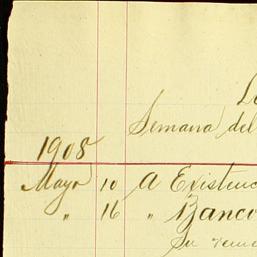 Semana del
1908
Mayo 10 A Existenc
" 16 " Banco
Su